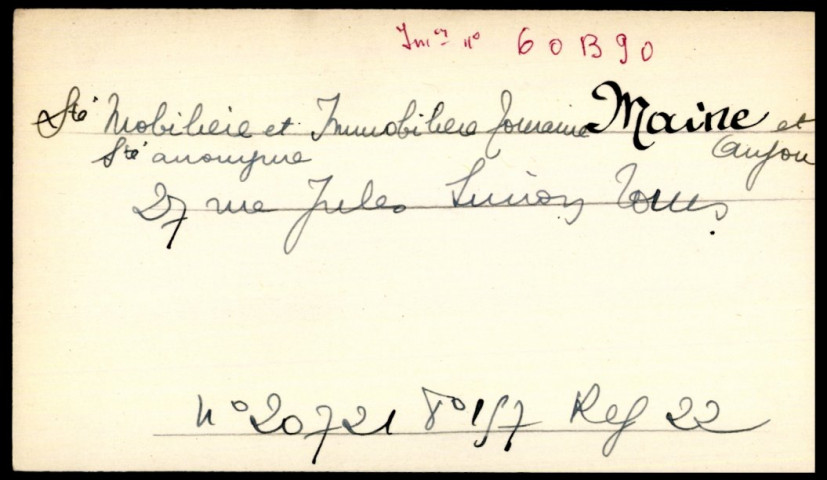 Im^on n° 60 B 90
Sté Mobilière et Immobilière Touraine Maine et Anjou
Sté anonyme
27 rue Jules Simon Tours
N° 20721 F° 157 Reg 22